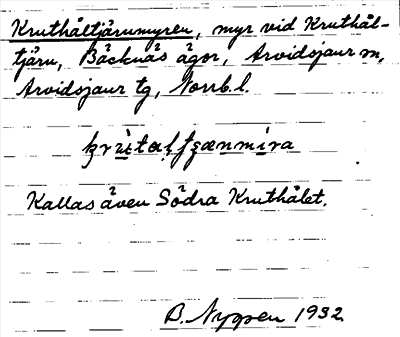 Kruthåltjärnmyren, myr vid Kruthål-
tjärn, Bäcknäs ägor, Arvidsjaur sn,
Arvidsjaur tg, Norrb. l.
Kallas även Södra Kruthålet.
B. Nygren 1932